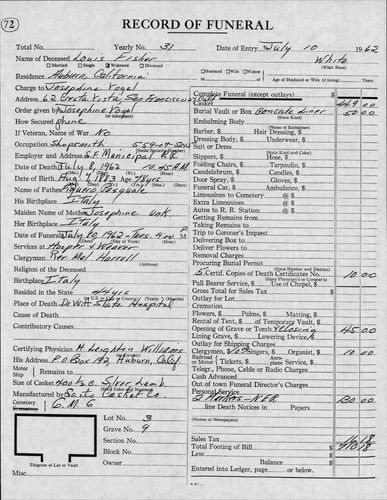 72
RECORD OF FUNERAL
Total No. Yearly No. 31 Date of Entry July 10 1962
Name of Deceased Louis Fisher White
Married Single Widowed Divorced Husband Wife Widow (What Race)
Residence Auburn, California of Age of Husband or Wife (if living) Years
Charge to Josephine Vogel
Address 62 Cresta Vista San Francisco
Order given by Josephine Vogel
(or informant)
How Secured phone
If Veteran, of War No
Occupation Shopsmith 559-09-5215
(Social Security Number)
Employer and Address S.F. Municipal R.R.
Date of Death July 8, 1962 10:45 A.M.
(Mo.) (Day) (Yr.) (Hour)
Date of Birth Aug 7, 1883 Age 78 yrs
Name of Father Pasquale
His Birthplace Italy
Maiden Name of Mother Josephine unk
Her Birthplace Italy
Date of Funeral July 10, 1962
(Date) (Day of Week) (Hour)
Services at
Clergyman Rev Mel Harrell
(Address)
Religion of the Deceased
Birthplace Italy
Resided in the State 44 yrs
Place of Death De Witt State Hospital
Cause of Death
Contributory Causes
Certifying Physician M. Leighton Williams
His Address P O Box 192, Auburn, Calif
Motor Ship Remains to
Size of Casket Silver Lamb.
Manufactured by Casket Co
Cemetery
Crematory C. M. G
Lot No. 3
Grave No. 9
Section No.
Block No.
Owner
Diagram of Lot or Vault
Misc.
Complete Funeral (except outlays) $
Casket
Burial Vault or Box Concrete Liner 50.00
(State Kind)
Embalming Body
(Name of Embalmer)
Barber, $ Hair Dressing, $
Dressing Body, $ Underwear, $
Suit or Dress
(State Kind and Color)
Slippers, $ Hose, $
Folding Chairs, $ Tarpaulin, $
Candelabrum, $ Candles, $
Door Spray, $ Gloves, $
Funeral Car, $ Ambulance, $
Limousines to Cemetery @ $
Extra Limousines @ $
Autos to R. R. Station @ $
Getting Remains from
Taking Remains to
Trip to Coroner's Inquest
Delivering Box to
Deliver Flowers to
Removal Charges
Procuring Burial Permit
(State Number and District)
5 Certif. Copies of Death Certificate No. 10.00
(State Physician's or Coroner's)
Pall Bearer Service, $ Use of Chapel, $
Gross Total for Sales Tax $
Outlay for Lot
Cremation
Flowers, $ Palms, $ Matting, $
Rental of Tent, $ of Temporary Vault, $
Opening of Grave or Tomb 45.00
Lining Grave, $ Lowering Device, $
Outlay for Shipping Charges
Clergyman, $ Singers, $ Organist, $ 10.00
Railroad or Motor Tickets, $ plane Service, $
Telegr., Phone, Cable or Radio Charges
Cash Advanced
Out of town Funeral Director's Charges
Personal Service
130.00
line Death Notices in Papers
(Names of Newspapers)
Sales Tax $
Total Footing of Bill $
Less $
Balance $
Entered into Ledger, page or below.